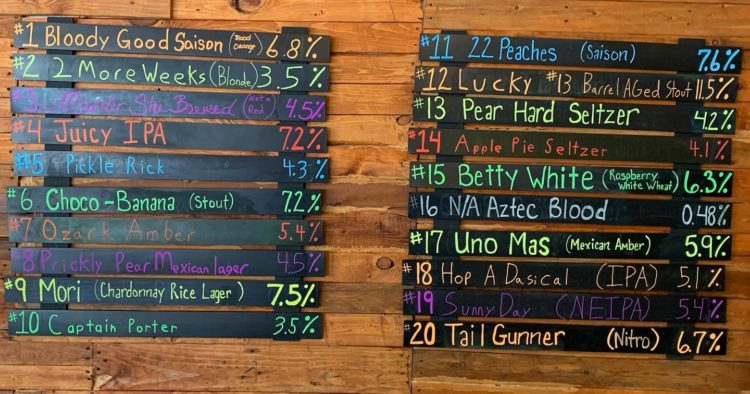 #1 Bloody Good Saison (Blood Orange) 6.8%
#2 2 More Weeks (Blonde) 3.5%
#3 Murder She Brewed (Not a Red) 4.5%
#4 Juicy IPA 7.2%
#5 Pickle Rick 4.3%
#6 Choco-Banana (Stout) 7.2%
#7 Ozark Amber 5.4%
#8 Prickly Pear Mexican lager 4.5%
#9 Mori (Chardonnay Rice Lager) 7.5%
#10 Captain Porter 3.5%
#11 22 Peaches (Saison) 7.6%
#12 Lucky #13 Barrel AGed Stout 11.5%
#13 Pear Hard Seltzer 4.2%
#14 Apple Pie Seltzer 4.1%
#15 Betty White (Raspberry White Wheat) 6.3%
#16 N/A Aztec Blood 0.48%
#17 Uno Mas (Mexican Amber) 5.9%
#18 Hop A Dasical (IPA) 5.1%
#19 Sunny Day (NEIPA) 5.4%
#20 Tail Gunner (Nitro) 6.7%